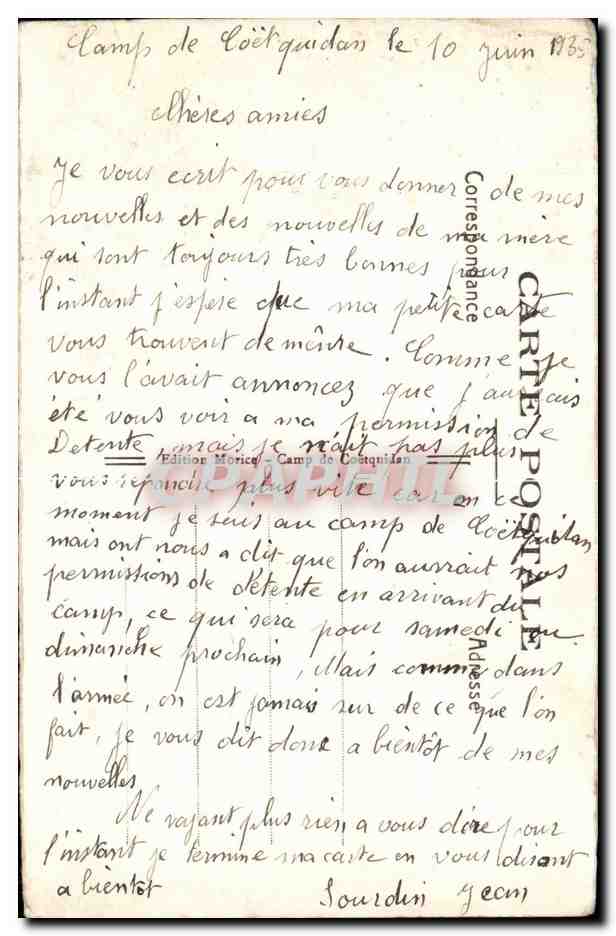 Camp de Coëtquidan le 10 juin 1935
Chères amies
Je vous ecrit pour vous donner de mes
nouvelles et des nouvelles de ma mère
qui sont toujours très bonnes pour
l'instant j'espère que ma petite carte
vous trouvent de même. Comme je
vous l'avait annoncez que j'aurais
été vous voir a ma permission de
Detente, mais je n'ait pas plus
vous repondre plus vite car en ce
moment je suis au camp de Coëtquidan
mais ont nous a dit que l'on aurrait nos
permissions de détente en arrivant du
camp, ce qui sera pour samedi ou
dimanche prochain, Mais comme dans
l'armée, on est jamais sur de ce que l'on
fait, je vous dit donc a bientôt de mes
nouvelles
Ne voyant plus rien a vous dire pour
l'instant je termine ma carte en vous disant
a bientôt Sourdin Jean
CARTE POSTALE
Correspondance
Adresse
Edition Morice - Camp de Coëtquidan